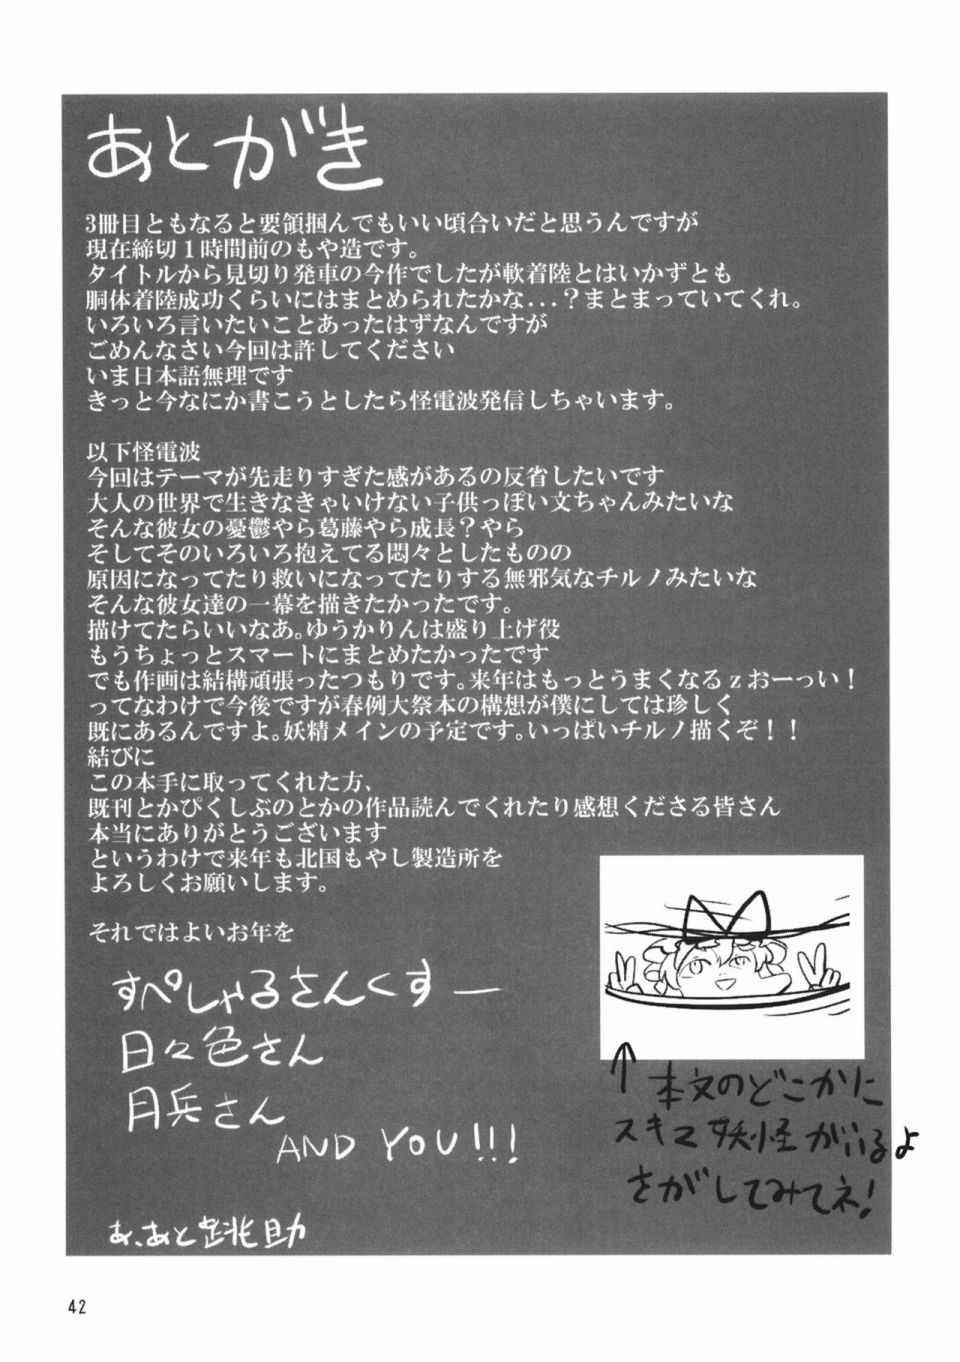 あとがき
3冊目ともなると要領掴んでもいい頃合いだと思うんですが
現在締切１時間前のもや造です。
タイトルから見切り発車の今作でしたが軟着陸とはいかずとも
胴体着陸成功くらいにはまとめられたかな...？まとまっていてくれ。
いろいろ言いたいことあったはずなんですが
ごめんなさい今回は許してください
いま日本語無理です
きっと今なにか書こうとしたら怪電波発信しちゃいます。
以下怪電波
今回はテーマが先走りすぎた感があるの反省したいです
大人の世界で生きなきゃいけない子供っぽい文ちゃんみたいな
そんな彼女の憂鬱やら葛藤やら成長？やら
そしてそのいろいろ抱えてる悶々としたものの
原因になってたり救いになってたりする無邪気なチルノみたいな
そんな彼女達の一幕を描きたかったです。
描けてたらいいなあ。ゆうかりんは盛り上げ役
もうちょっとスマートにまとめたかったです
でも作画は結構頑張ったつもりです。来年はもっとうまくなるｚおーっい！
ってなわけで今後ですが春例大祭本の構想が僕にしては珍しく
既にあるんですよ。妖精メインの予定です。いっぱいチルノ描くぞ！！
結びに
この本手に取ってくれた方、
既刊とかぴくしぶのとかの作品読んでくれたり感想くださる皆さん
本当にありがとうございます
というわけで来年も北国もやし製造所を
よろしくお願いします。
それではよいお年を
すぺしゃるさんくすー
日々色さん
月兵さん
AND YOU!!!
あ、あと 助
↑本文のどこかに
スキマ妖怪がいるよ
さがしてみてネ！
42